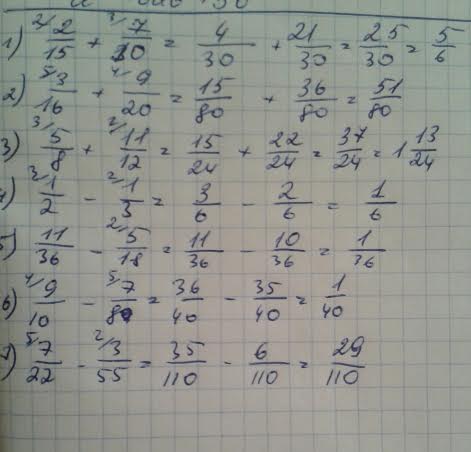 1) 2/ 2/15 + 3/ 7/10 = 4/30 + 21/30 = 25/30 = 5/6
2) 5/ 3/16 + 4/ 9/20 = 15/80 + 36/80 = 51/80
3) 3/ 5/8 + 2/ 11/12 = 15/24 + 22/24 = 37/24 = 1 13/24
4) 3/ 1/2 - 2/ 1/3 = 3/6 - 2/6 = 1/6
5) 11/36 - 2/ 5/18 = 11/36 - 10/36 = 1/36
6) 4/ 9/10 - 5/ 7/8 = 36/40 - 35/40 = 1/40
7) 5/ 7/22 - 2/ 3/55 = 35/110 - 6/110 = 29/110